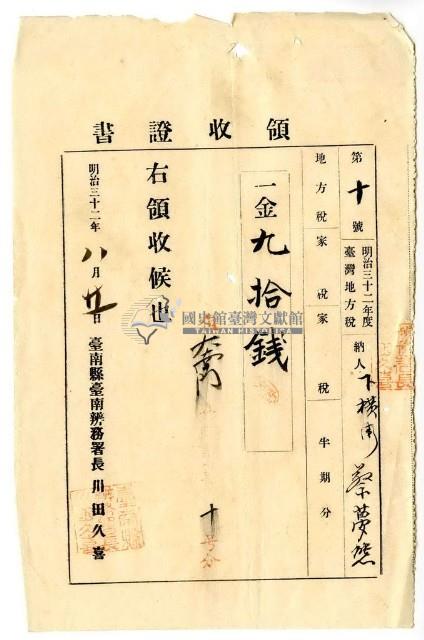 領收證書
第十號
明治三十二年度
臺灣地方稅
納人
下橫街 蔡夢熊
地方稅家稅家稅半期分
一金九拾錢
右領收候也
明治三十二年八月廿一日
臺南縣臺南辨務署長 川田久喜
國史館臺灣文獻館
TAIWAN HISTORICA